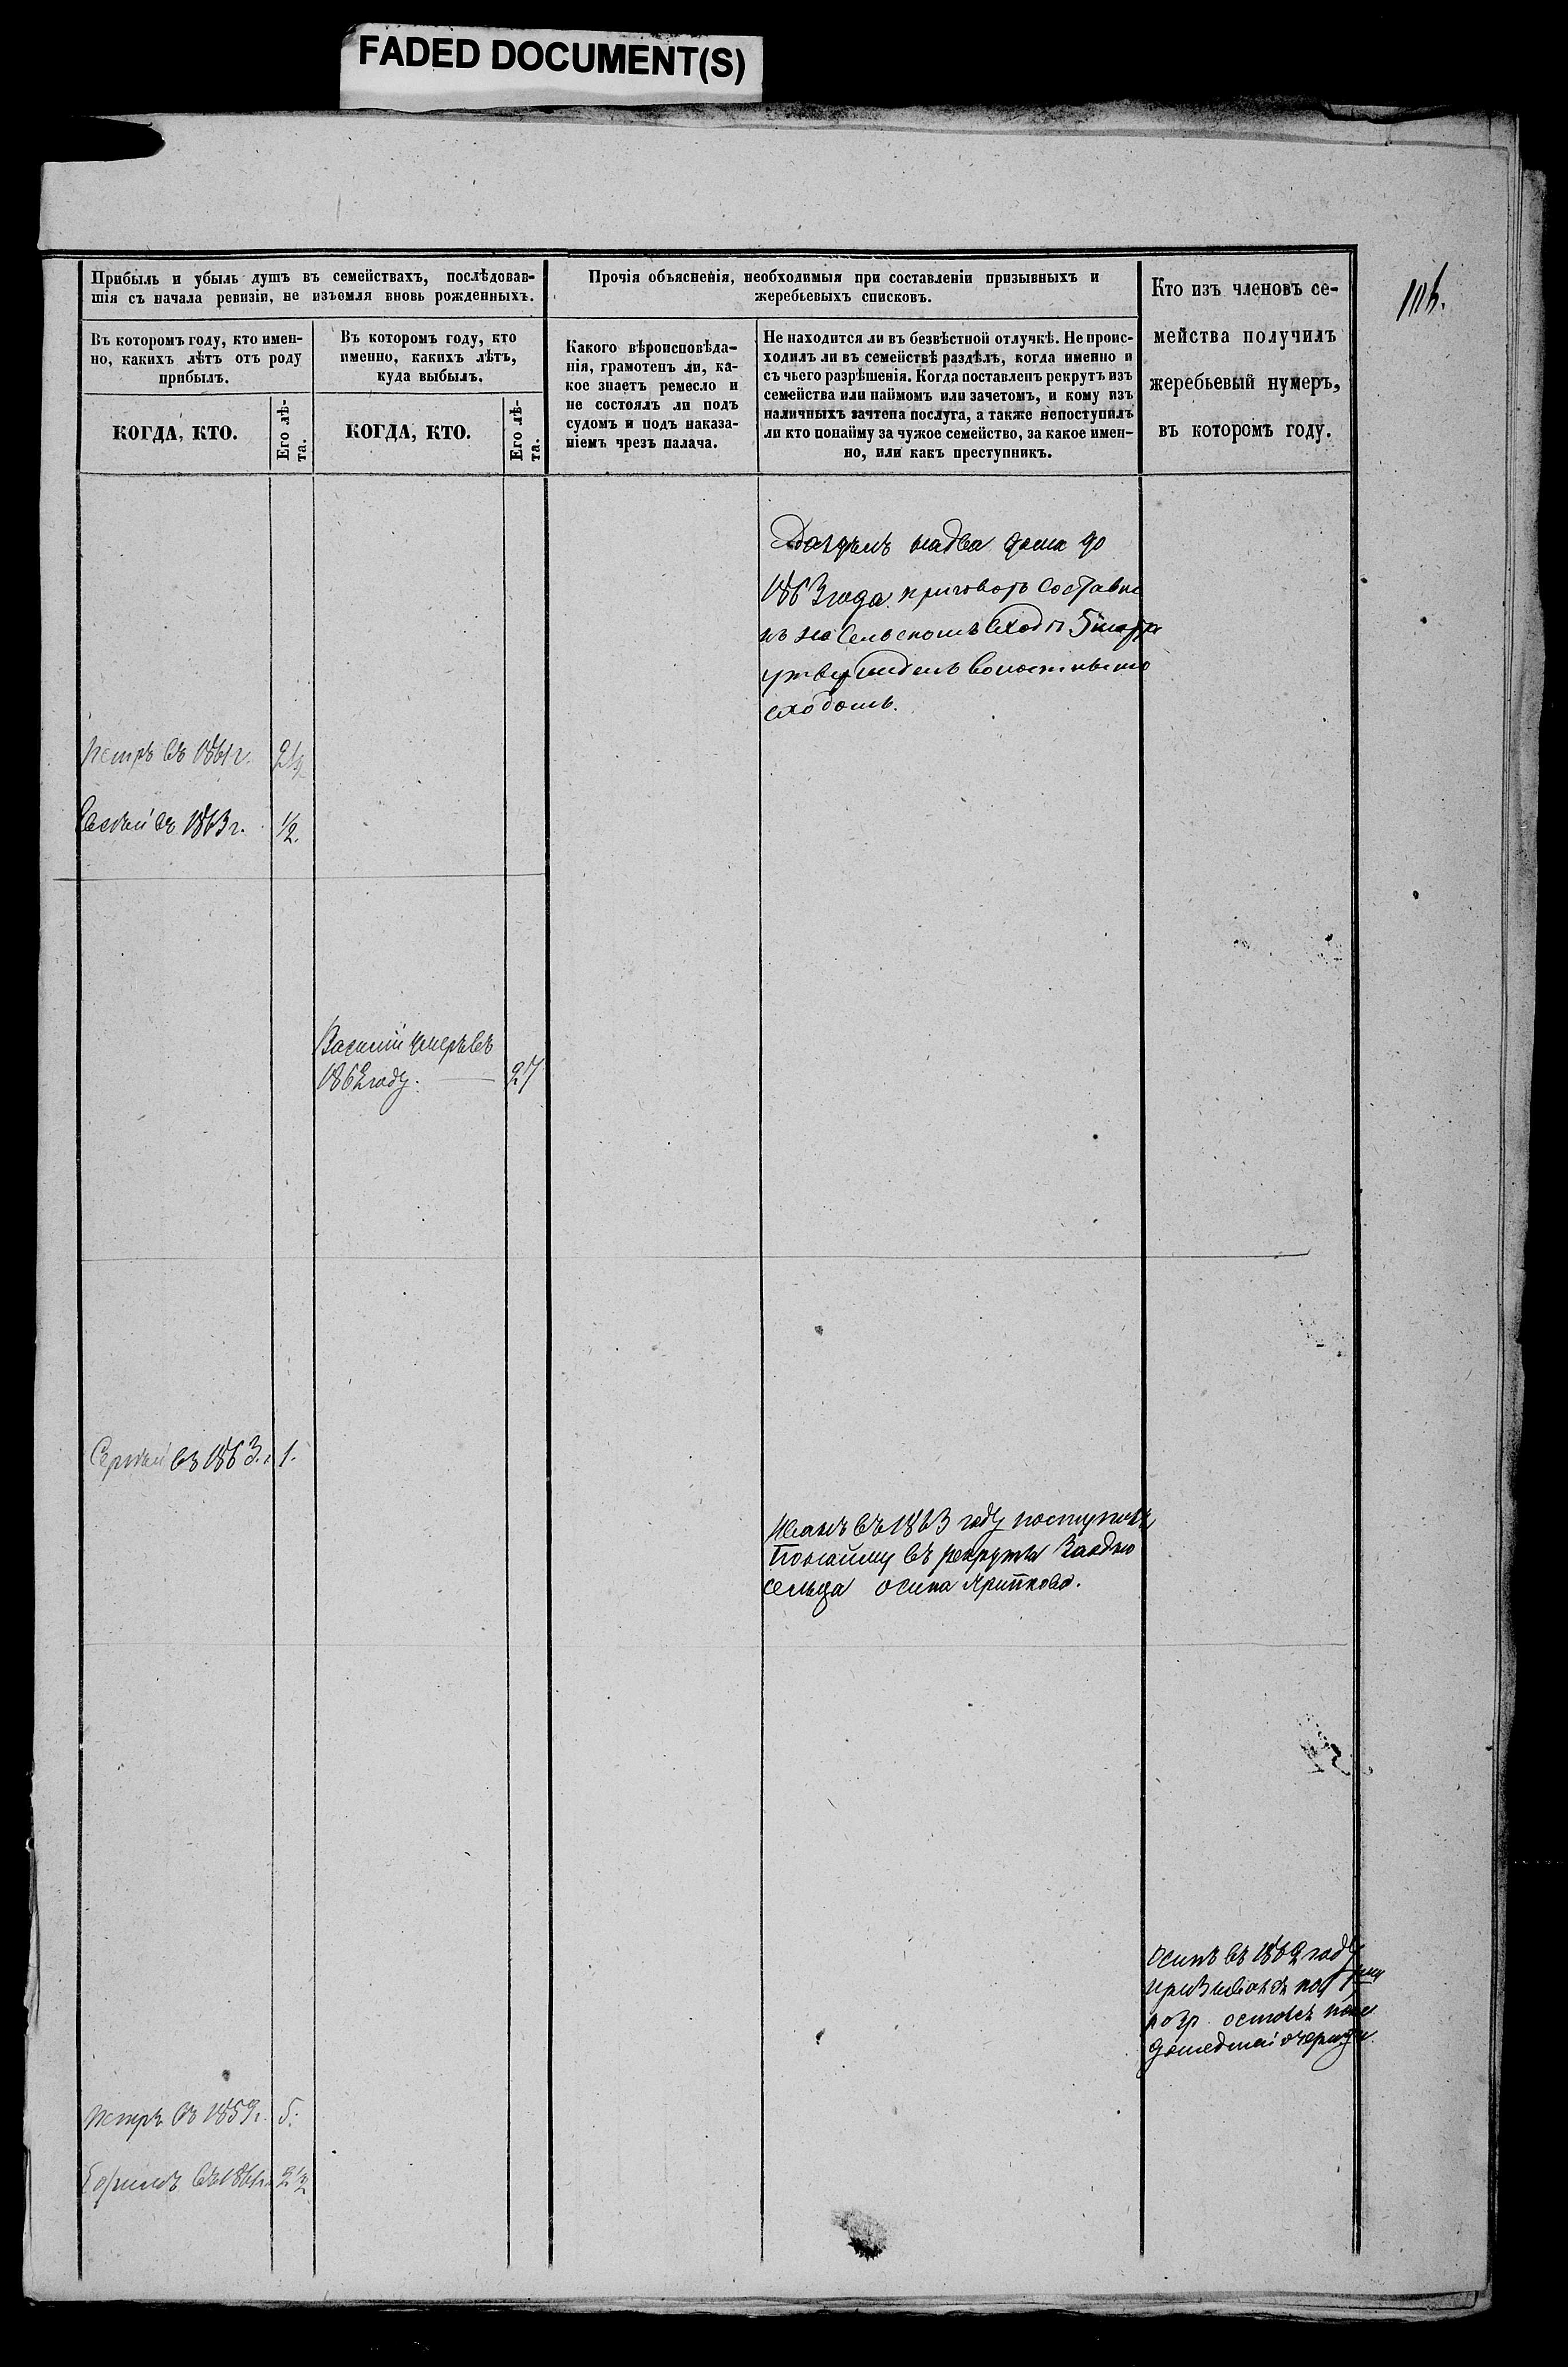 FADED DOCUMENT(S)
Прибыль и убыль душъ въ семействахъ, послѣдовав-
шія съ начала ревизіи, не изъемля вновь рожденныхъ.
Въ которомъ году, кто имен-
но, какихъ лѣтъ отъ роду
прибылъ.
КОГДА, КТО.
Его лѣ-
та.
Въ которомъ году, кто
именно, какихъ лѣтъ,
куда выбылъ.
КОГДА, КТО.
Его лѣ-
та.
Прочія объясненія, необходимыя при составленіи призывныхъ и
жеребьевыхъ списковъ.
Какого вѣроисповѣда-
нія, грамотенъ ли, ка-
кое знаетъ ремесло и
не состоялъ ли подъ
судомъ и подъ наказа-
ніемъ чрезъ палача.
Не находится ли въ безвѣстной отлучкѣ. Не проис-
ходилъ ли въ семействѣ раздѣлъ, когда именно и
съ чьего разрѣшенія. Когда поставленъ рекрутъ изъ
семейства или наймомъ или зачетомъ, и кому изъ
наличныхъ зачтена послуга, а также непоступилъ
ли кто понайму за чужое семейство, за какое имен-
но, или какъ преступникъ.
Кто изъ членовъ се-
мейства получилъ
жеребьевый нумеръ,
въ которомъ году.
надва дома до
1863 года. приговоръ составле
нъ на Сельскомъ Сходѣ 5 марта
утвержденъ волостнымъ
сходомъ.
Петръ въ 1861 г. 2½
въ 1863 г. ½.
Василій умеръ въ
1862 году. — 27
Сергѣй въ 1863 г. 1.
Иванъ въ 1863 году поступилъ
Понайму въ рекруты Заодно
сельца осипа
осипъ въ 1862 году
призывался по
розр. остался по не
дошедшей очереди.
Петръ въ 1859 г. 5.
Ефимъ въ 1861 г. 2½